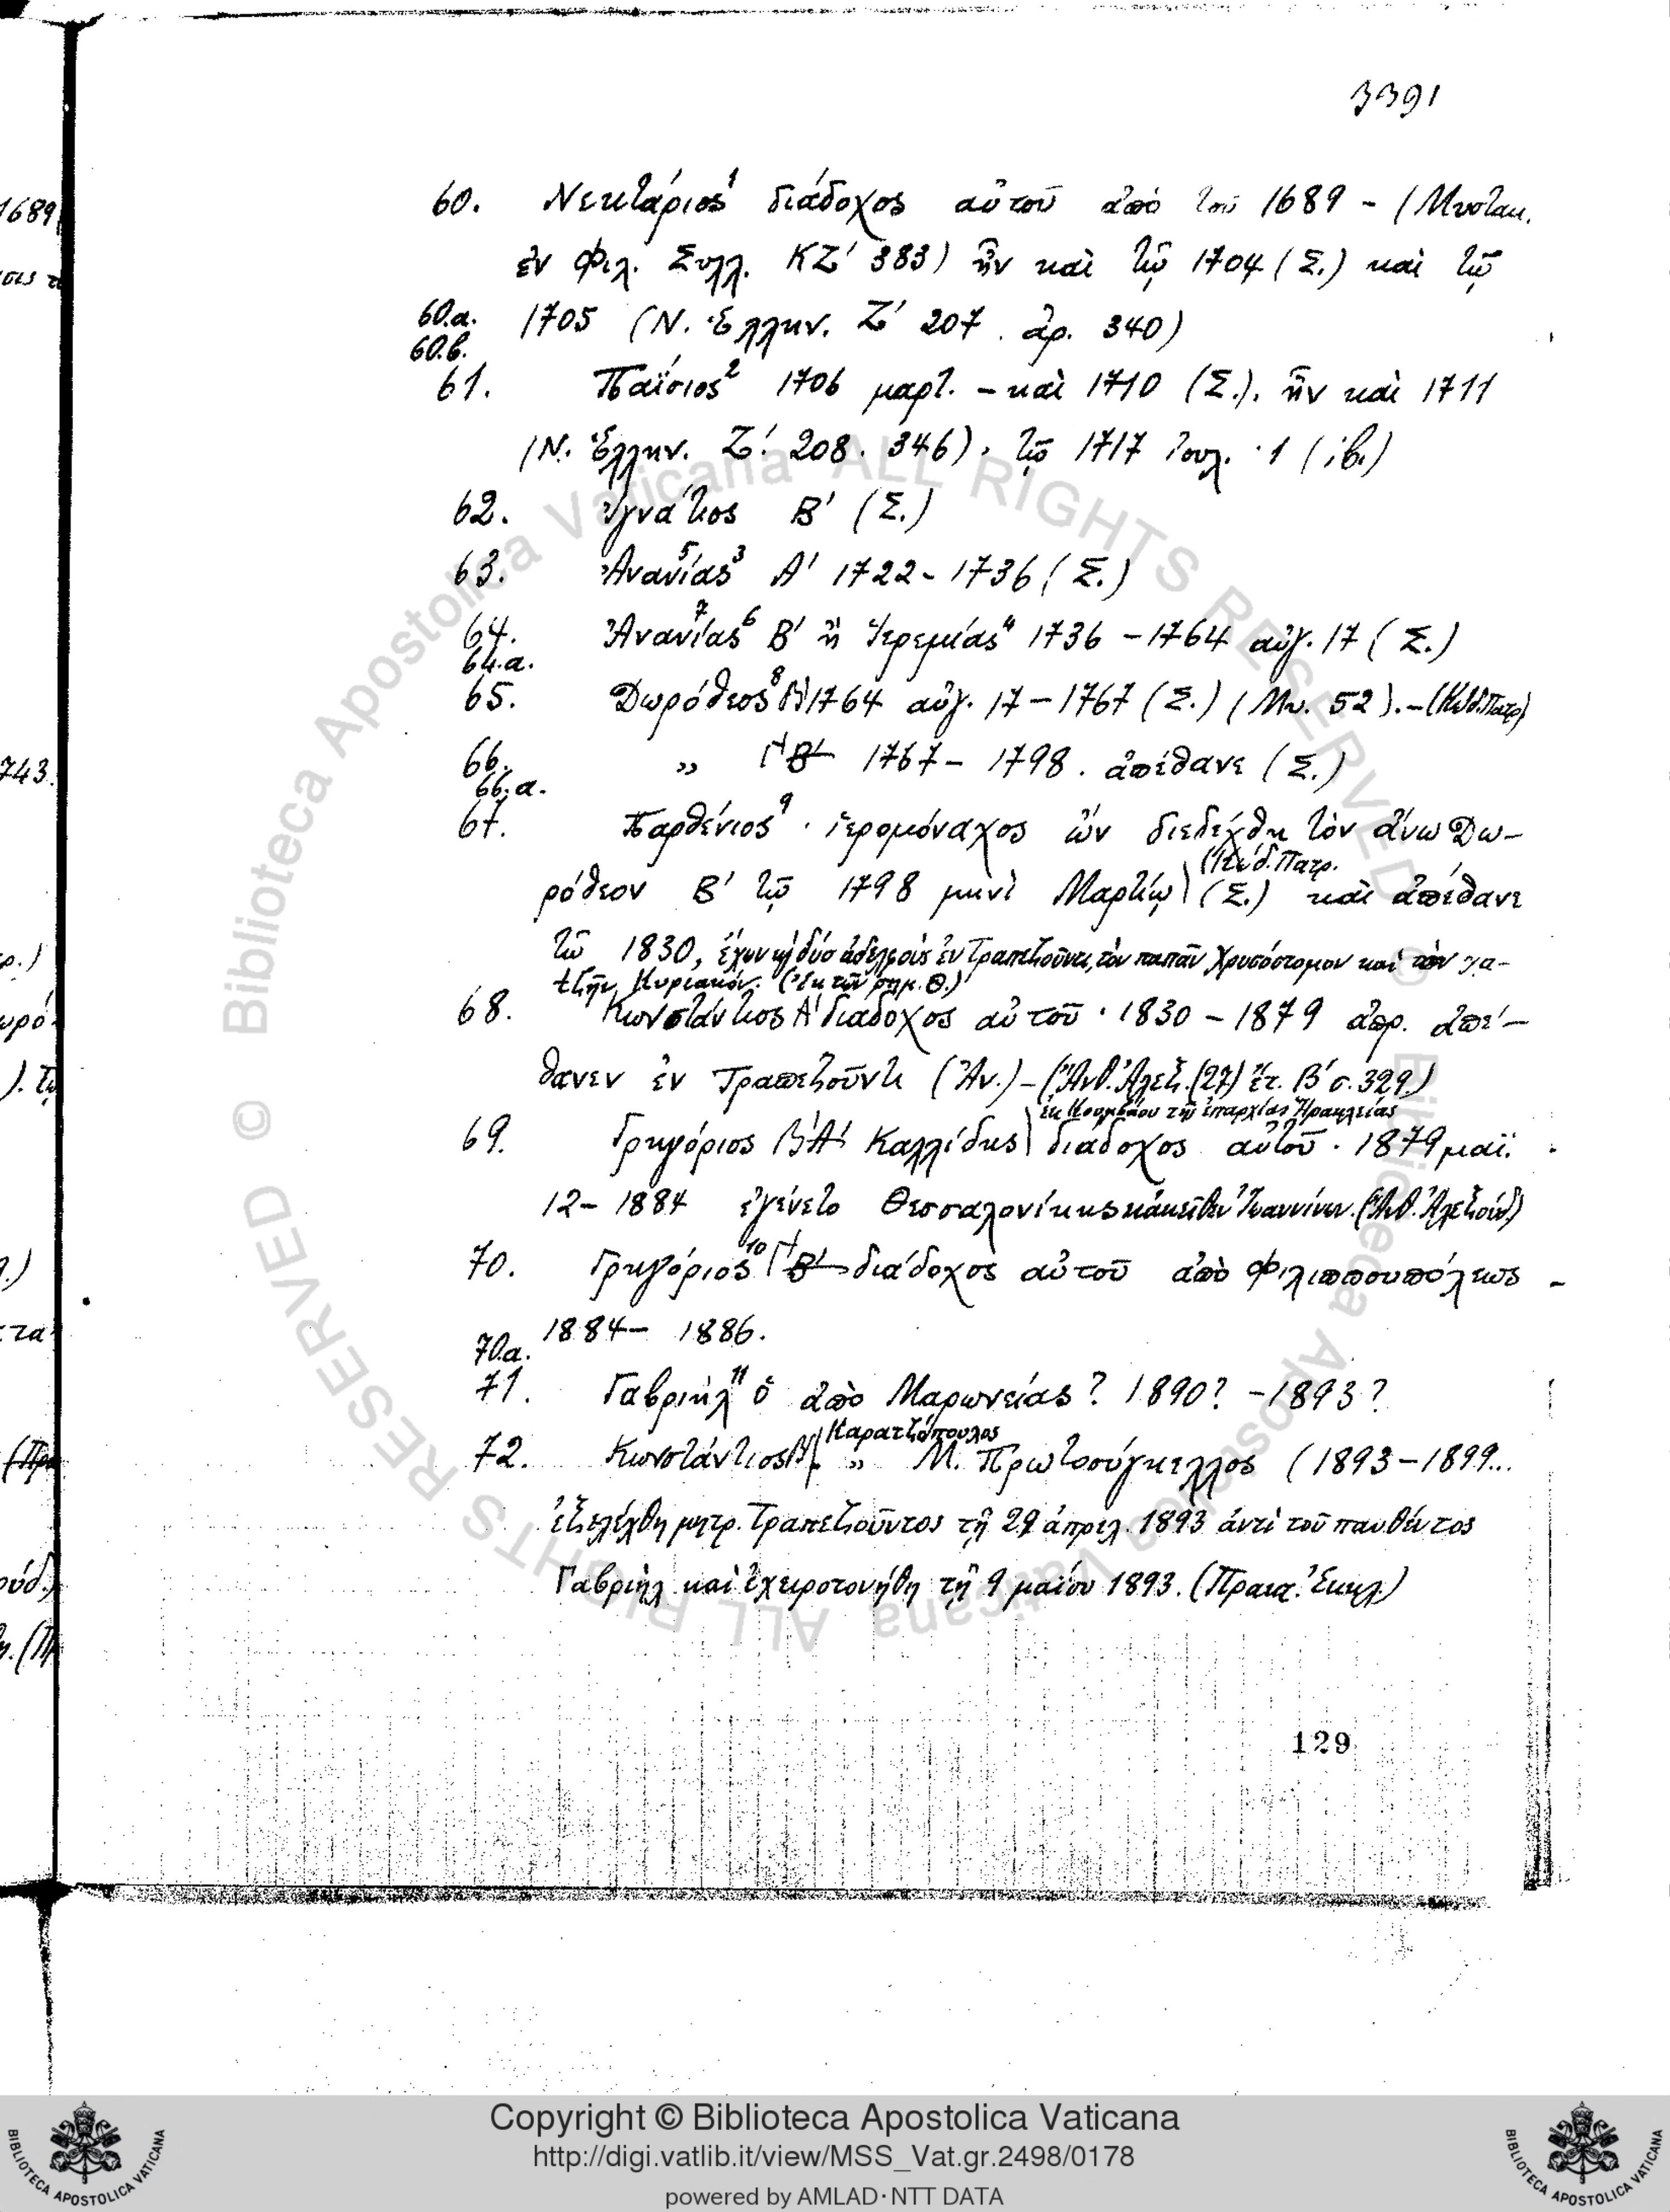 3391
60. Νεκτάριος¹ διάδοχος αὐτοῦ ἀπὸ τοῦ 1689 - (Μυστακ.
ἐν Φιλ. Συλλ. ΚΖ' 383) ἦν καὶ τῷ 1704 (Σ.) καὶ τῷ
60.α. 1705 (Ν. Ἑλλην. Ζ' 207. ἀρ. 340)
60.β.
61. Παΐσιος² 1706 μαρτ. - καὶ 1710 (Σ.). ἦν καὶ 1711
(Ν. Ἑλλην. Ζ'. 208. 346). τῷ 1717 Ἰουλ. 1 (ἰβ.)
62. Ἰγνάτιος Β' (Σ.)
63. Ἀνανίας⁵ ³ Α' 1722 - 1736 (Σ.)
64. Ἀνανίας⁷ ⁶ Β' ἢ Ἱερεμίας⁴ 1736 - 1764 αὐγ. 17 (Σ.)
64.α.
65. Δωρόθεος⁸ Β' 1764 αὐγ. 17 - 1767 (Σ.) (Μν. 52). - (Κώδ. Πατρ.)
66. „ Γ' Β' 1767 - 1798. ἀπέθανε (Σ.)
66.α.
67. Παρθένιος⁹. ἱερομόναχος ὢν διεδέχθη τὸν ἄνω Δω-
(Κώδ. Πατρ.
ρόθεον Β' τῷ 1798 μηνὶ Μαρτίῳ (Σ.) καὶ ἀπέθανε
τῷ 1830, ἔχων καὶ δύο ἀδελφοὺς ἐν Τραπεζοῦντι, τὸν παπᾶν Χρυσόστομον καὶ τὸν χα-
τζῆν Κυριακόν. (Ἐκ τῶν σημ. Θ.)
68. Κωνστάντιος Α' διάδοχος αὐτοῦ. 1830 - 1879 ἀπρ. ἀπέ-
θανεν ἐν Τραπεζοῦντι (Ἀν.) - (Ἀνθ. Ἀλεξ. (27) ἔτ. Β' σ. 329)
ἐκ Κουμβάου τῆς ἐπαρχίας Ἡρακλείας
69. Γρηγόριος Β' Α' Καλλίδης διάδοχος αὐτοῦ. 1879 μαΐ.
12 - 1884 ἐγένετο Θεσσαλονίκης κἀκεῖθεν Ἰωαννίνων. (Ἀνθ. Ἀλεξούδ.)
70. Γρηγόριος¹⁰ Γ' Β' διάδοχος αὐτοῦ ἀπὸ Φιλιππουπόλεως -
1884 - 1886.
70.α.
71. Γαβριὴλ¹¹ ὁ ἀπὸ Μαρωνείας? 1890? - 1893?
Καρατζόπουλος
72. Κωνστάντιος Β'. „ Μ. Πρωτοσύγκελλος (1893 - 1899...
ἐξελέχθη μητρ. Τραπεζοῦντος τῇ 29 ἀπριλ. 1893 ἀντὶ τοῦ παυθέντος
Γαβριὴλ καὶ ἐχειροτονήθη τῇ 9 μαΐου 1893. (Πρακτ. Ἐκκλ.)
129
Copyright © Biblioteca Apostolica Vaticana
http://digi.vatlib.it/view/MSS_Vat.gr.2498/0178
powered by AMLAD·NTT DATA